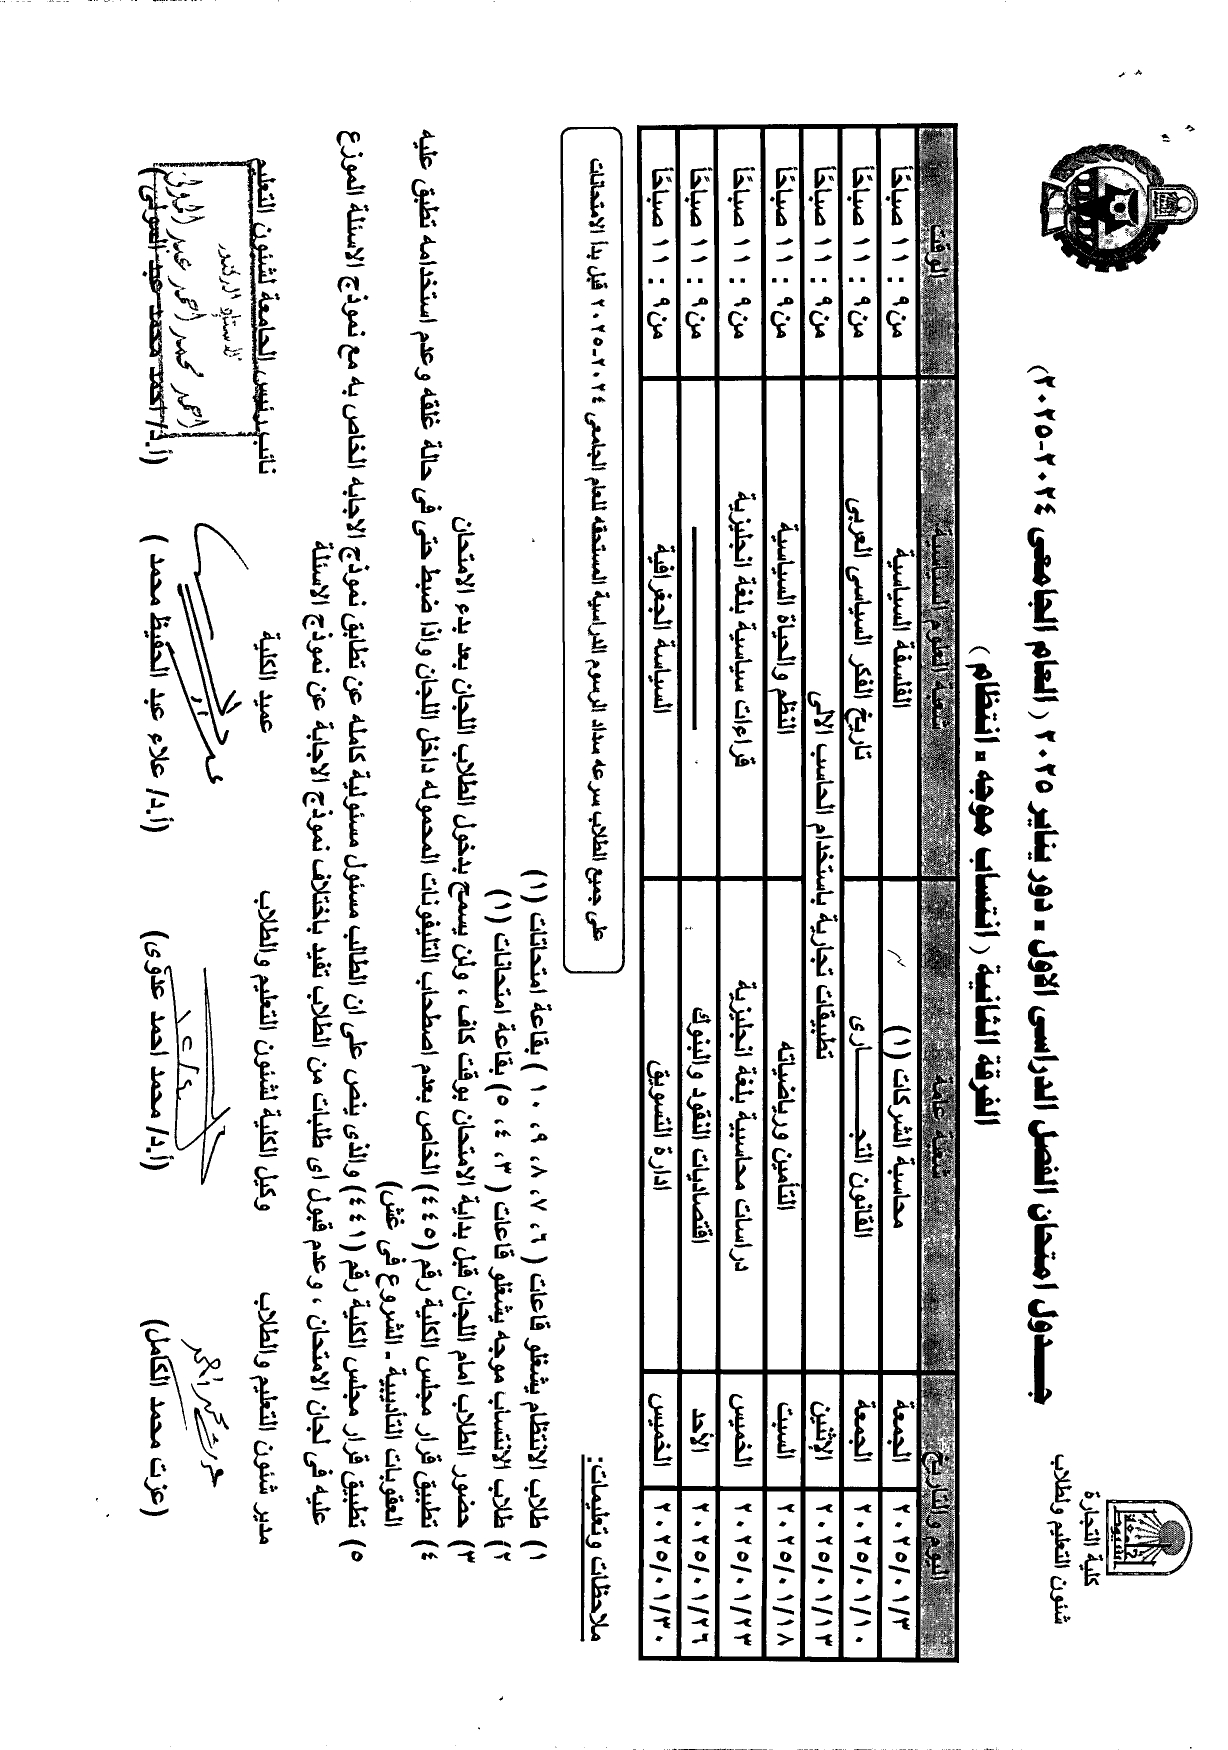 كلية التجارة
شئون التعليم ولطلاب
جـــدول امتحان الفصل الدراسى الاول - دور يناير ٢٠٢٥ ( العام الجامعى ٢٠٢٤-٢٠٢٥)
الفرقة الثانية ( انتساب موجه - انتظام )
اليوم والتاريخ شعبة عامة شعبة العلوم السياسية الوقت
الجمعة ٢٠٢٥/٠١/٣ محاسبة الشركات (١) الفلسفة السياسية من ٩ : ١١ صباحًا
الجمعة ٢٠٢٥/٠١/١٠ القانون التجــــــــارى تاريخ الفكر السياسى العربى من ٩ : ١١ صباحًا
الإثنين ٢٠٢٥/٠١/١٣ تطبيقات تجارية باستخدام الحاسب الالى من ٩ : ١١ صباحًا
السبت ٢٠٢٥/٠١/١٨ التأمين ورياضياته النظم والحياة السياسية من ٩ : ١١ صباحًا
الخميس ٢٠٢٥/٠١/٢٣ دراسات محاسبية بلغة انجليزية قراءات سياسية بلغة انجليزية من ٩ : ١١ صباحًا
الأحد ٢٠٢٥/٠١/٢٦ اقتصاديات النقود والبنوك ـــــــــــــ من ٩ : ١١ صباحًا
الخميس ٢٠٢٥/٠١/٣٠ ادارة التسويق السياسة الجغرافية من ٩ : ١١ صباحًا
ملاحظات وتعليمات:
على جميع الطلاب سرعه سداد الرسوم الدراسية المستحقه للعام الجامعى ٢٠٢٤-٢٠٢٥ قبل بدأ الامتحانات
١) طلاب الانتظام يشغلو قاعات ( ٦، ٧، ٨، ٩، ١٠ ) بقاعة امتحانات (١)
٢) طلاب الانتساب موجه يشغلو قاعات ( ٣، ٤، ٥) بقاعة امتحانات (١)
٣) حضور الطلاب امام اللجان قبل بداية الامتحان بوقت كاف ، ولن يسمح بدخول الطلاب اللجان بعد بدء الامتحان
٤) تطبيق قرار مجلس الكلية رقم (٤٤٥) الخاص بعدم اصطحاب التليفونات المحموله داخل اللجان واذا ضبط حتى فى حالة غلقه وعدم استخدامه تطبق عليه
العقوبات التأديبية - الشروع فى غش)
٥) تطبيق قرار مجلس الكلية رقم (٤٤١) والذى ينص على ان الطالب مسئول مسئولية كامله عن تطابق نموذج الاجابه الخاص به مع نموذج الاسئلة الموزع
عليه فى لجان الامتحان ، وعدم قبول اى طلبات من الطلاب تفيد باختلاف نموذج الاجابة عن نموذج الاسئلة
مدير شئون التعليم والطلاب وكيل الكلية لشئون التعليم والطلاب عميد الكلية نائب رئيس الجامعة لشئون التعليم
(عزت محمد الكامل) (أ.د/ محمد احمد عدوى) (أ.د/ علاء عبد الحفيظ محمد ) (أ.د/ احمد محمد عبد المولى )